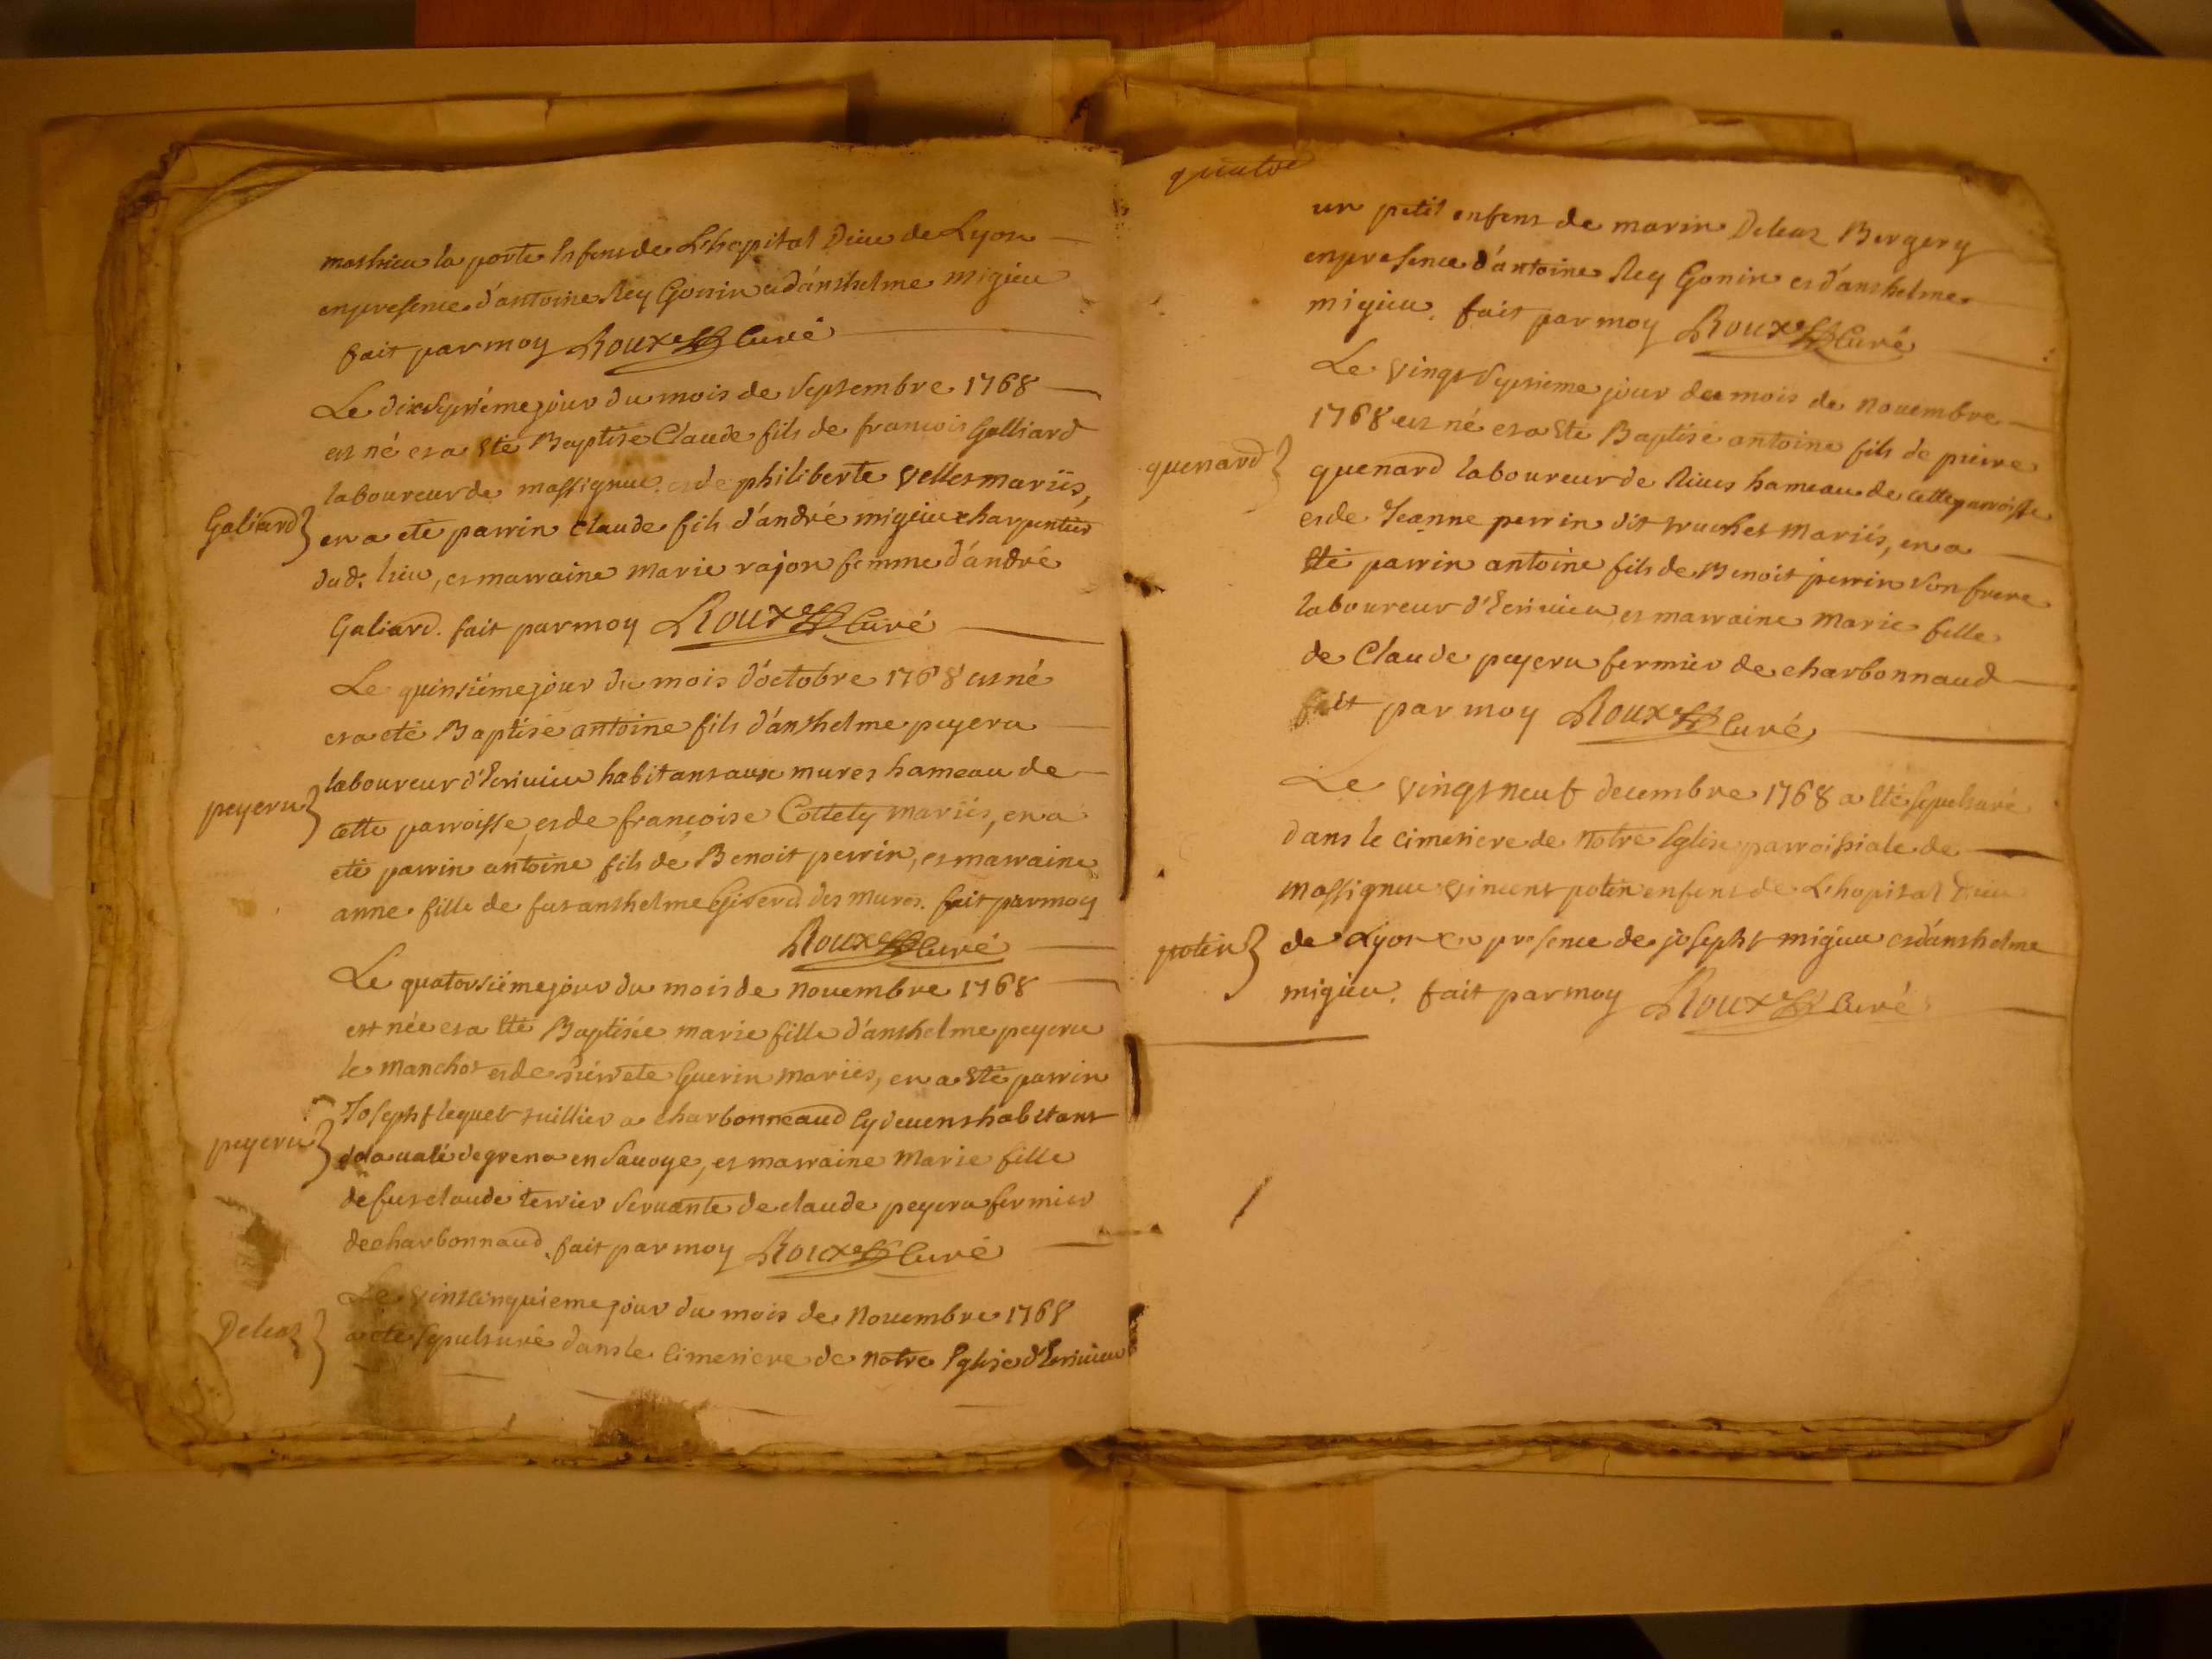 mathieu la porte Enfens de L'hopital Dieu de Lyon
en presence d'antoine Rey Gonin et d'anthelme migieu
fait par moy Roux Curé
Le dix Septiéme jour du mois de Septembre 1768
est né et a Eté Baptisé Claude fils de francois Galliard
laboureur de massignieu et de philiberte Vellet mariés,
Galiard
en a eté parrin Claude fils d'andré migieu charpentier
dud. lieu, et marraine marie rajon femme d'andré
Galiard. fait par moy Roux Curé
Le quinsiéme jour du mois d'octobre 1768 est né
et a eté Baptisé antoine fils d'anthelme peyeru
laboureur d'Ecrivieu habitant aux mures hameau de
peyeru
cette parroisse, et de francoise Cottety mariés, en a
eté parrin antoine fils de Benoit perrin, et marraine
anne fille de fut anthelme des mures. fait par moy
Roux Curé
Le quatorsiéme jour du mois de novembre 1768
est née et a Eté Baptisée marie fille d'anthelme peyeru
le manchot et de Guerin mariés, en a Eté parrin
Joseph a charbonneaud Cy devent habitant
peyeru
de grena en Savoye, et marraine Marie fille
de fut claude terrier Servante de claude peyeru fermier
de charbonnaud. fait par moy Roux Curé
Le Vint cinquieme jour du mois de Novembre 1768
Deleaz
a eté Sepulturé dans le Cimetiere de notre Eglise d'Ecrivieu
quatre
un petit enfent de marin Deleaz Bergery
en presence d'antoine Rey Gonin et d'anthelme
migieu. fait par moy Roux Curé
Le Vingt Septieme jour du mois de novembre
1768 est né et a Eté Baptisé antoine fils de pierre
quenard
quenard laboureur de Rives hameau de cette parroisse
et de Jeanne perrin dit truchet Mariés, en a
Eté parrin antoine fils de Benoit perrin Son frere
laboureur d'Ecrivieu, et marraine Marie fille
de Claude peyeru fermier de charbonnaud
fait par moy Roux Curé
Le Vingt neuf decembre 1768 a Eté Sepulturé
dans le cimetiere de Notre Eglise parroissiale de
massignieu Vincent potin enfent de L'hopital Dieu
potin
de Lyon en presence de joseph migieu et d'anthelme
migieu. fait par moy Roux Curé